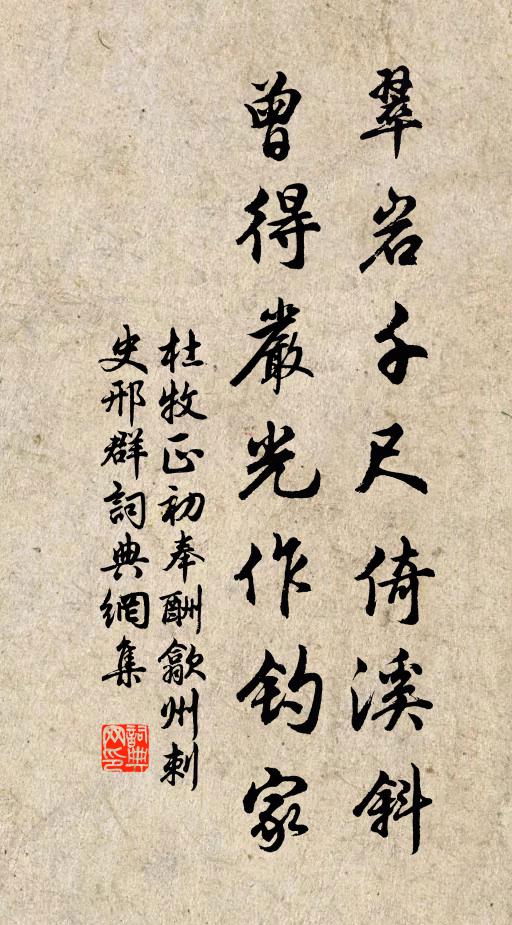 翠岩千尺倚溪斜
曾得嚴光作釣家
杜牧正初奉酬歙州刺
史邢群詞典網集
詞典
网印